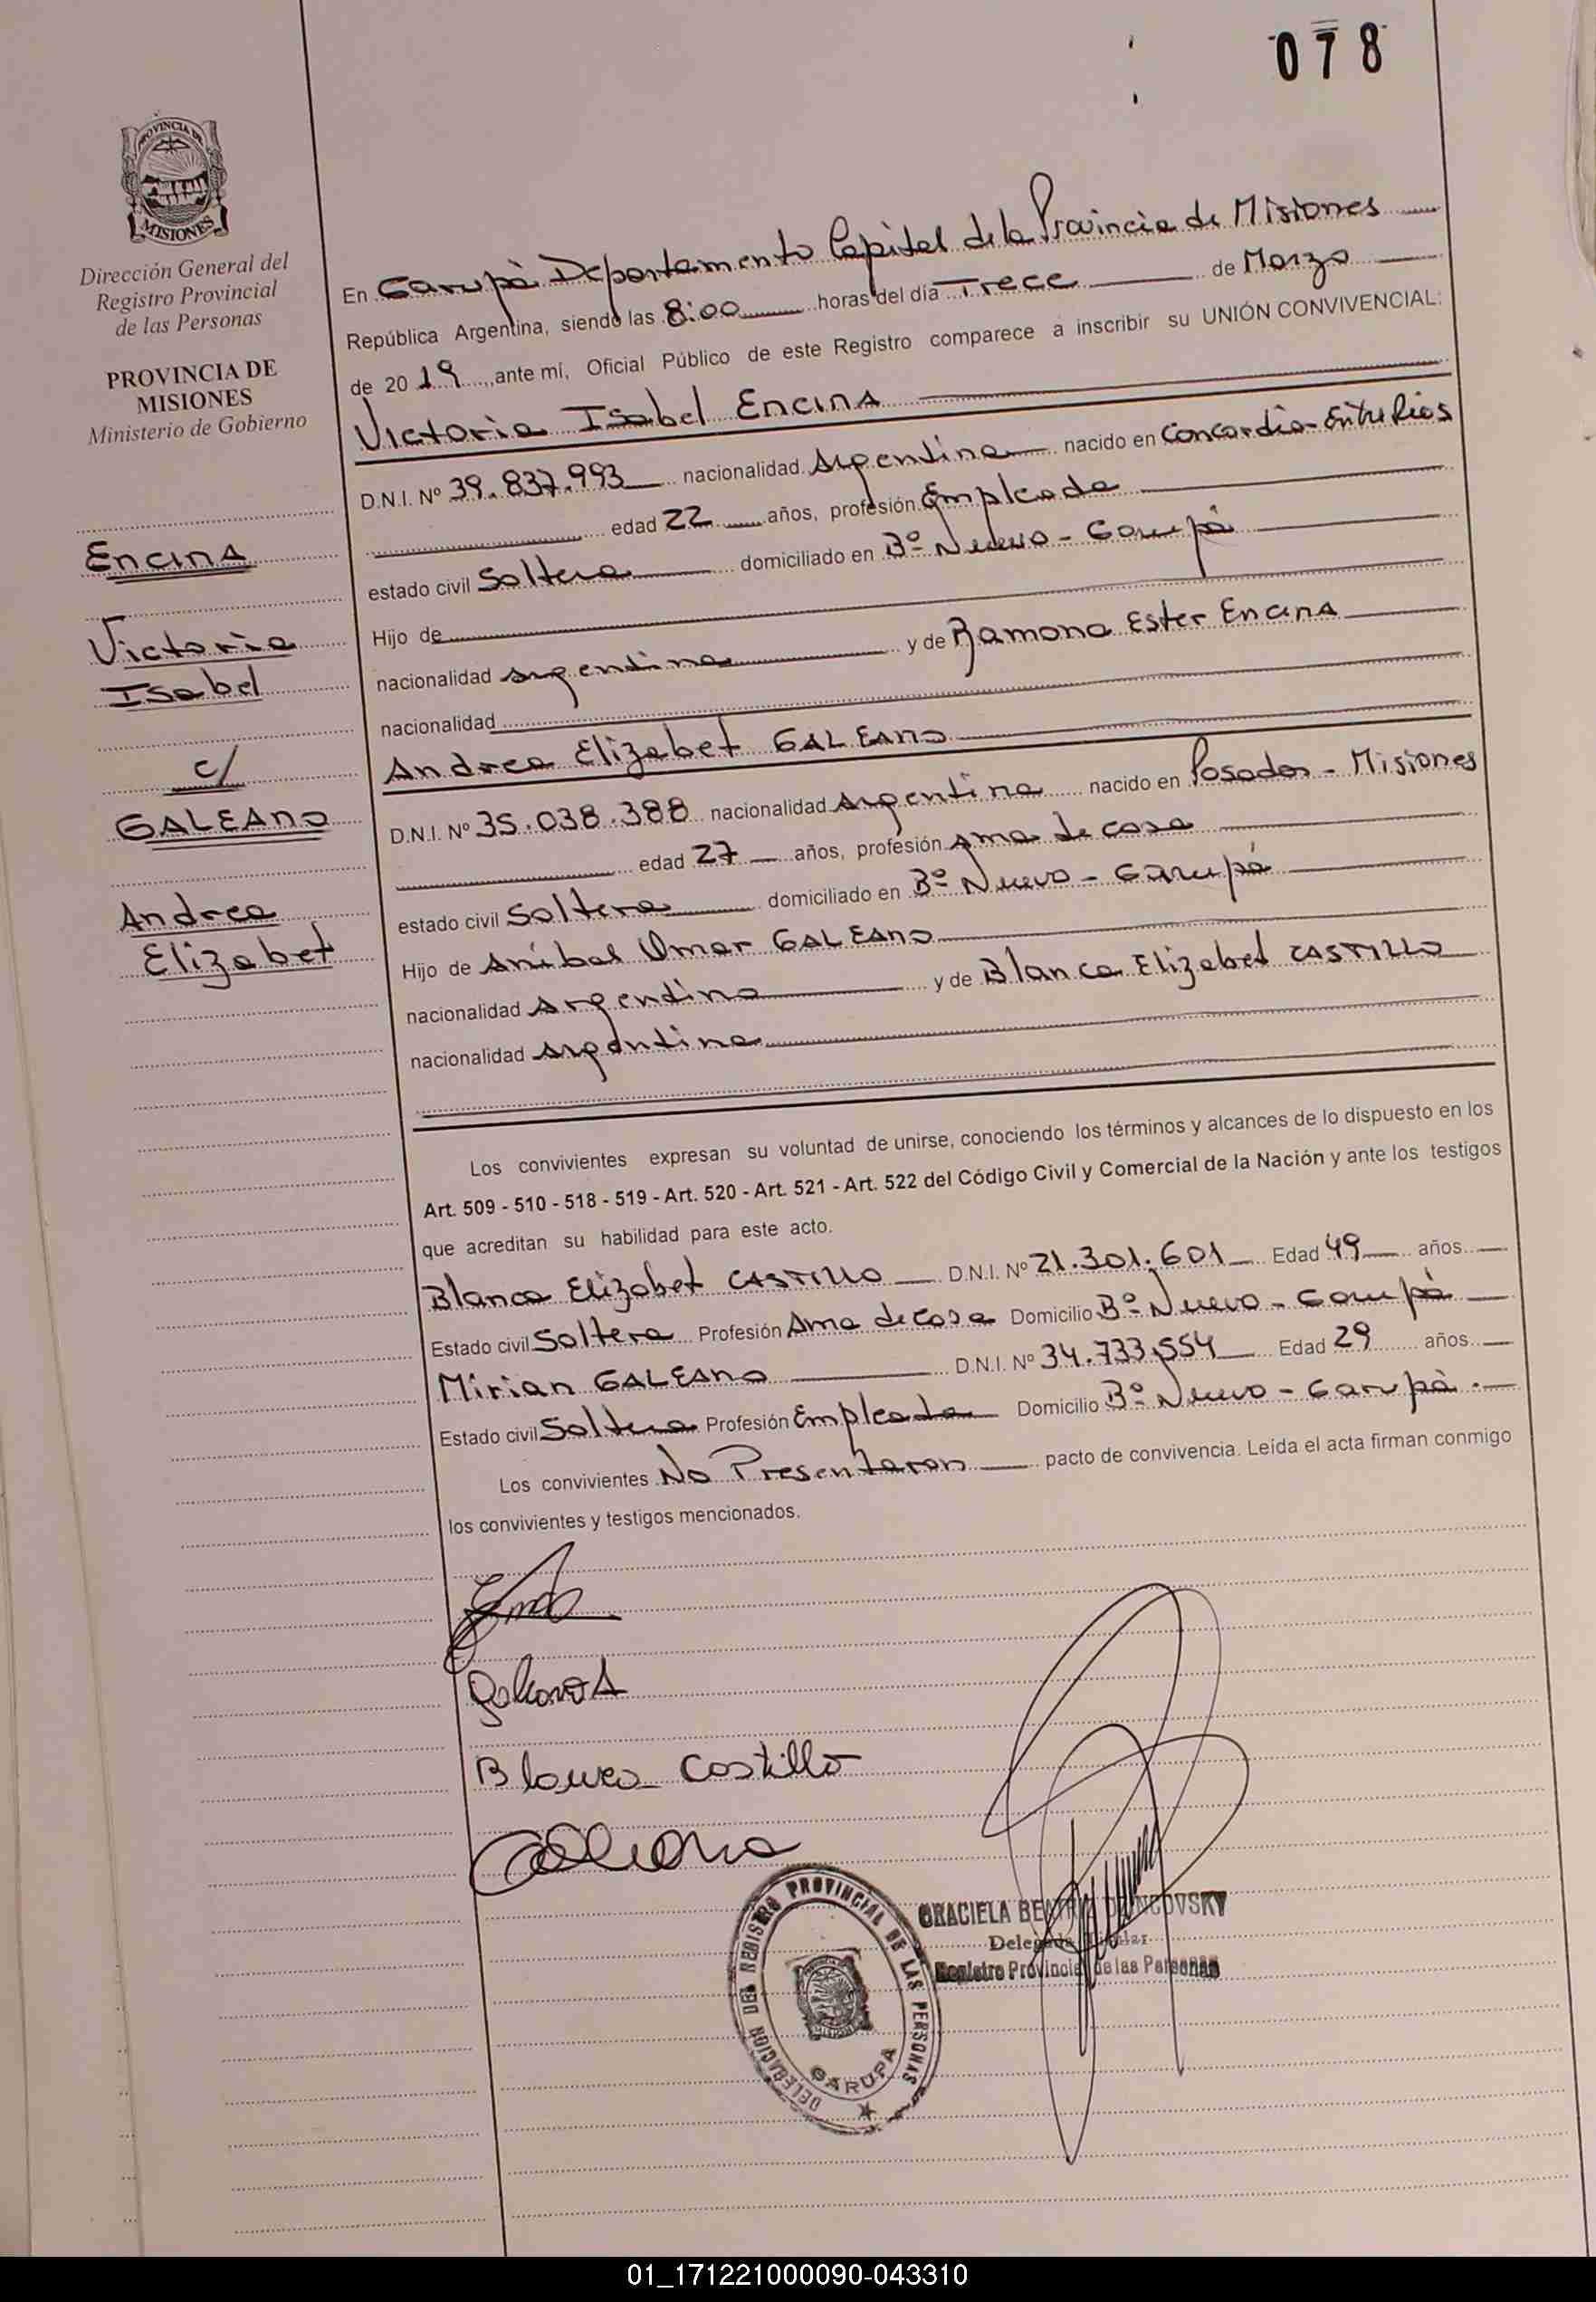 078
PROVINCIA DE
MISIONES
Dirección General del
Registro Provincial
de las Personas
PROVINCIA DE
MISIONES
Ministerio de Gobierno
Encina
Victoria
Isabel
c/
GALEANO
Andrea
Elizabet
En Garupá Departamento Capital de la Provincia de Misiones
República Argentina, siendo las 8:00 horas del día Trece de Marzo
de 2019, ante mí, Oficial Público de este Registro comparece a inscribir su UNIÓN CONVIVENCIAL:
Victoria Isabel Encina
D.N.I. Nº 39.837.993 nacionalidad Argentina nacido en Concordia-Entre Rios
edad 22 años, profesión Empleada
estado civil Soltera domiciliado en Bº Nuevo - Garupá
Hijo de
nacionalidad argentina y de Ramona Ester Encina
nacionalidad
Andrea Elizabet GALEANO
D.N.I. Nº 35.038.388 nacionalidad Argentina nacido en Posadas - Misiones
edad 27 años, profesión Ama de casa
estado civil Soltera domiciliado en Bº Nuevo - Garupá
Hijo de Anibal Omar GALEANO
nacionalidad Argentino y de Blanca Elizabet CASTILLO
nacionalidad Argentina
Los convivientes expresan su voluntad de unirse, conociendo los términos y alcances de lo dispuesto en los
Art. 509 - 510 - 518 - 519 - Art. 520 - Art. 521 - Art. 522 del Código Civil y Comercial de la Nación y ante los testigos
que acreditan su habilidad para este acto.
Blanca Elizabet CASTILLO D.N.I. Nº 21.301.601 Edad 49 años
Estado civil Soltera Profesión Ama de Casa Domicilio Bº Nuevo - Garupá
Mirian GALEANO D.N.I. Nº 34.733.554 Edad 29 años
Estado civil Soltera Profesión Empleada Domicilio Bº Nuevo - Garupá.
Los convivientes No Presentaron pacto de convivencia. Leída el acta firman conmigo
los convivientes y testigos mencionados.
Galeano A
Blanca Castillo
GRACIELA BEATRIZ
Delegada Titular
Registro Provincial de las Personas
DELEGACION DEL REGISTRO PROVINCIAL DE LAS PERSONAS
GARUPA
01_171221000090-043310